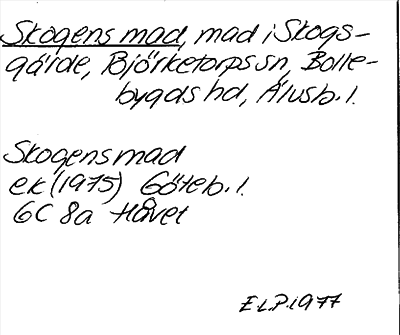 Skogens mad, mad i Skogs-
gärde, Björketorps sn, Bolle-
bygds hd, Älvsb. l.
Skogensmad
ek (1975) Göteb. l.
6C 8a Håvet
E L.P. 1977